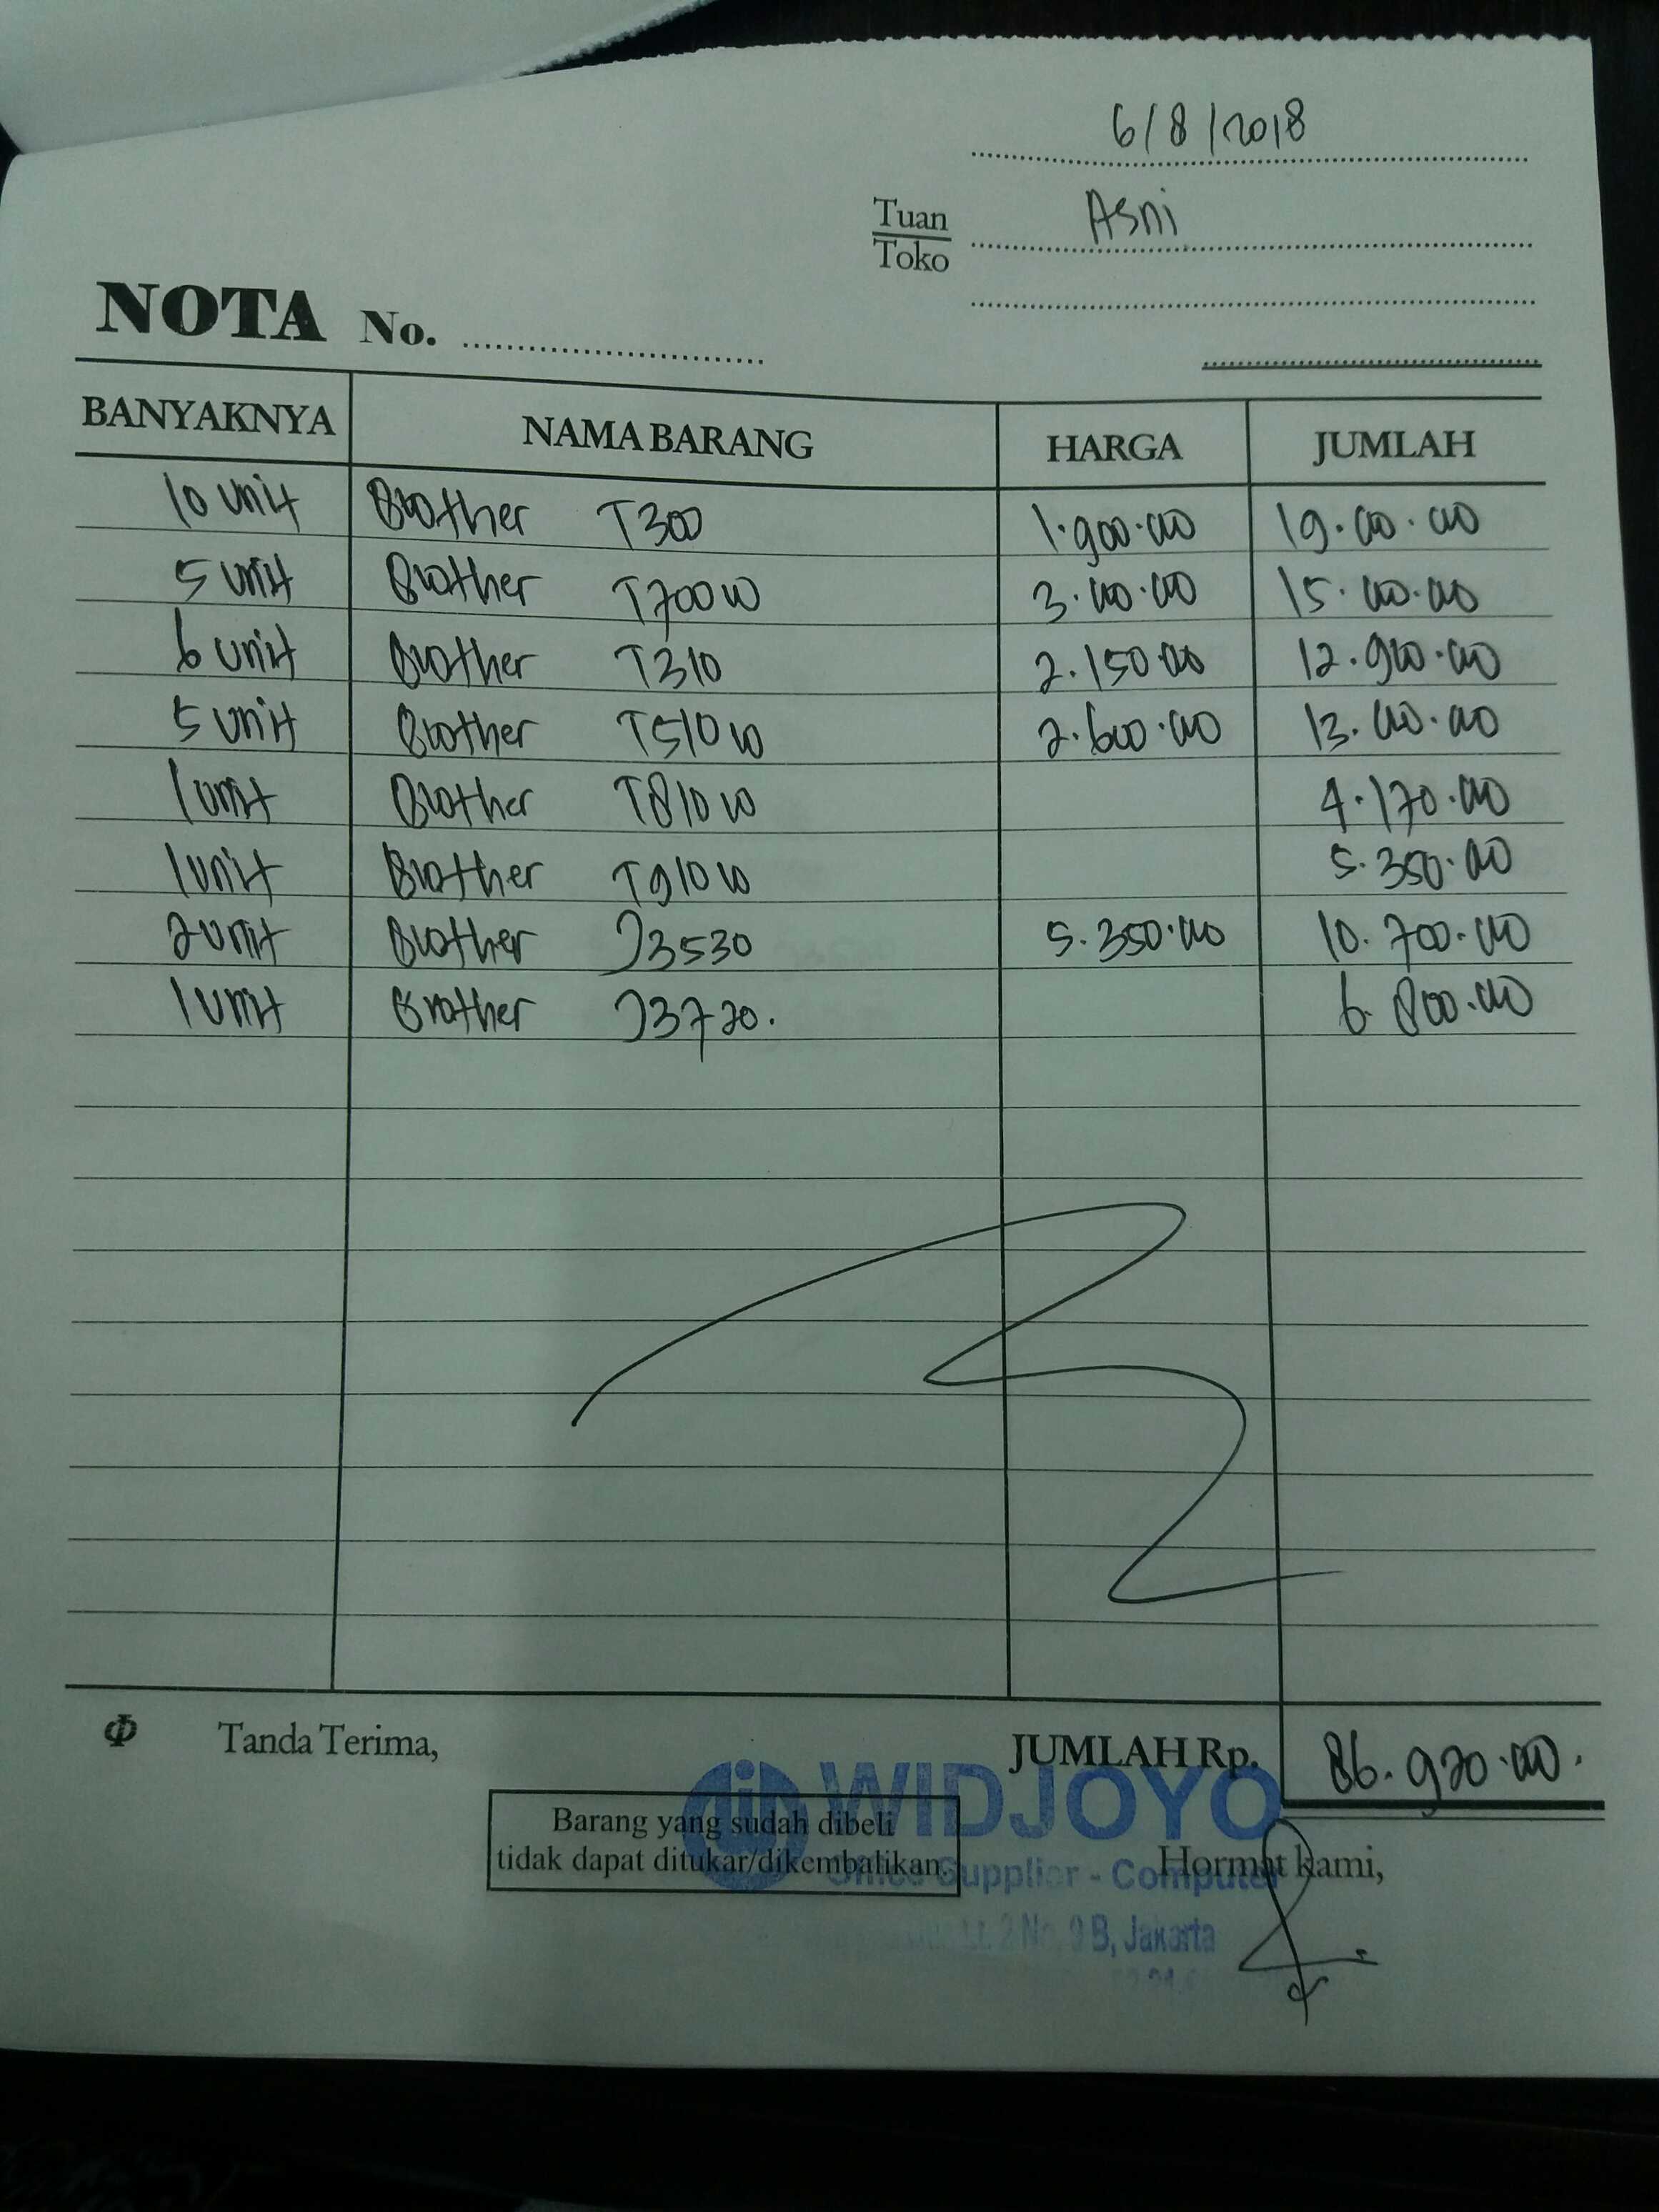 6/8/2018
Tuan
Toko
Asni
NOTA No.
BANYAKNYA NAMA BARANG HARGA JUMLAH
10 unit Brother T300 1.900.000 19.000.000
5 unit Brother T700W 3.000.000 15.000.000
6 unit Brother T310 2.150.000 12.900.000
5 unit Brother T510W 2.600.000 13.000.000
1 unit Brother T810W 4.170.000
1 unit Brother T910W 5.350.000
2 unit Brother J3530 5.350.000 10.700.000
1 unit Brother J3720. 6.800.000
Tanda Terima, JUMLAH Rp. 86.920.000.
WIDJOYO
Barang yang sudah dibeli
tidak dapat ditukar/dikembalikan.
Hormat kami,
Office Supplier - Computer
Lt. 2 No. 9 B, Jakarta